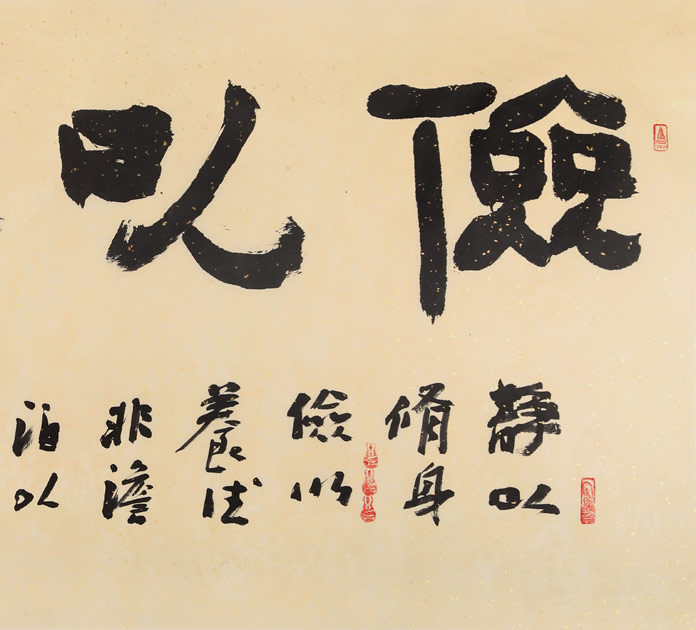 儉以
靜以
脩身
儉以
養德
非澹
泊以